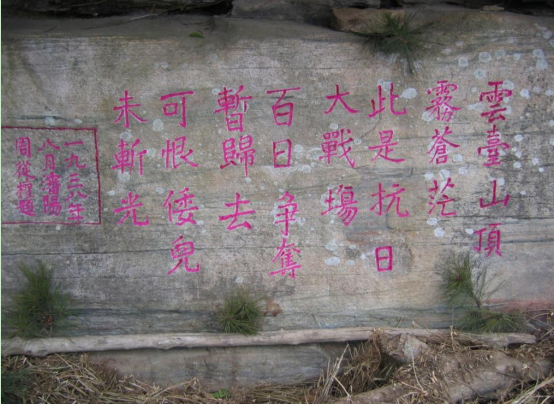 雲臺山頂
霧蒼茫
此是抗日
大戰塲
百日争奪
暫歸去
可恨倭兒
未斬光
一九三八年
八月番陽